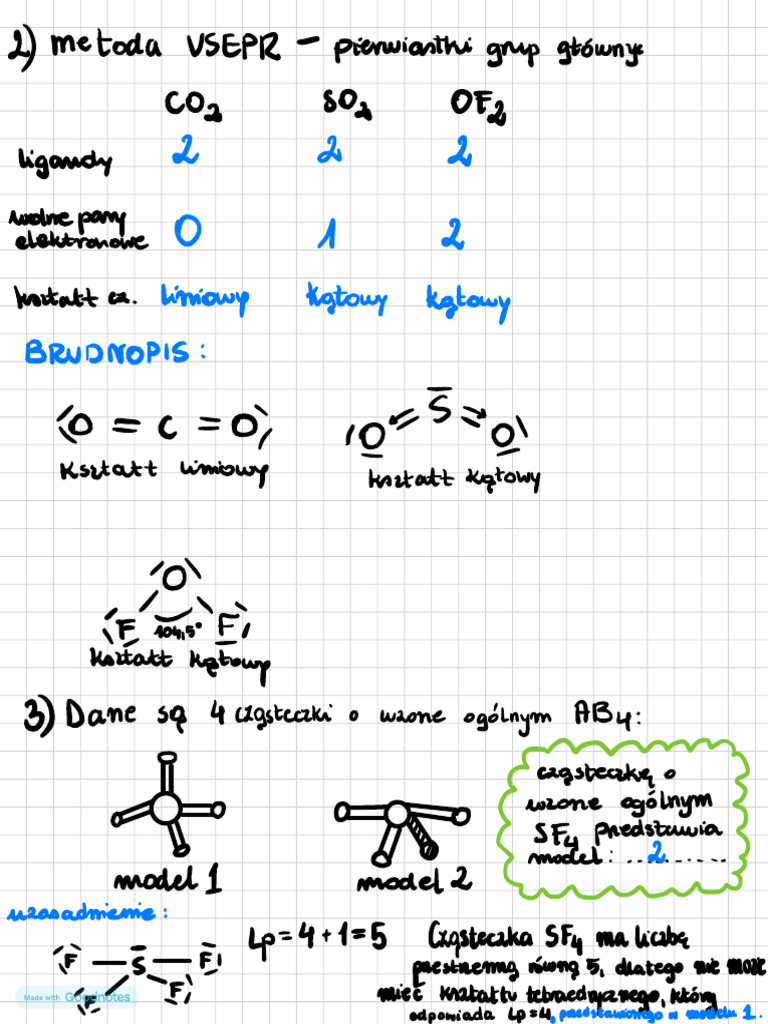 2) metoda VSEPR – pierwiastki grup głównyc
CO2 SO2 OF2
ligandy 2 2 2
wolne pary
elektronowe 0 1 2
kształt cz. liniowy kątowy kątowy
BRUDNOPIS:
O = C = O
S
O O
kształt liniowy
kształt kątowy
O
F 104,5° F
kształt kątowy
3) Dane są 4 cząsteczki o wzorze ogólnym AB4:
cząsteczkę o
wzorze ogólnym
SF4 predstawia
model: ....2..........
model 1 model 2
uzasadnienie:
Lp = 4 + 1 = 5 Cząsteczka SF4 ma liczbę
F S F
przestrzenną równą 5, dlatego nie może
F
F
mieć kształtu tetraedrycznego, który
odpowiada Lp=4, przedstawionego w modelu 1.
Made with Goodnotes